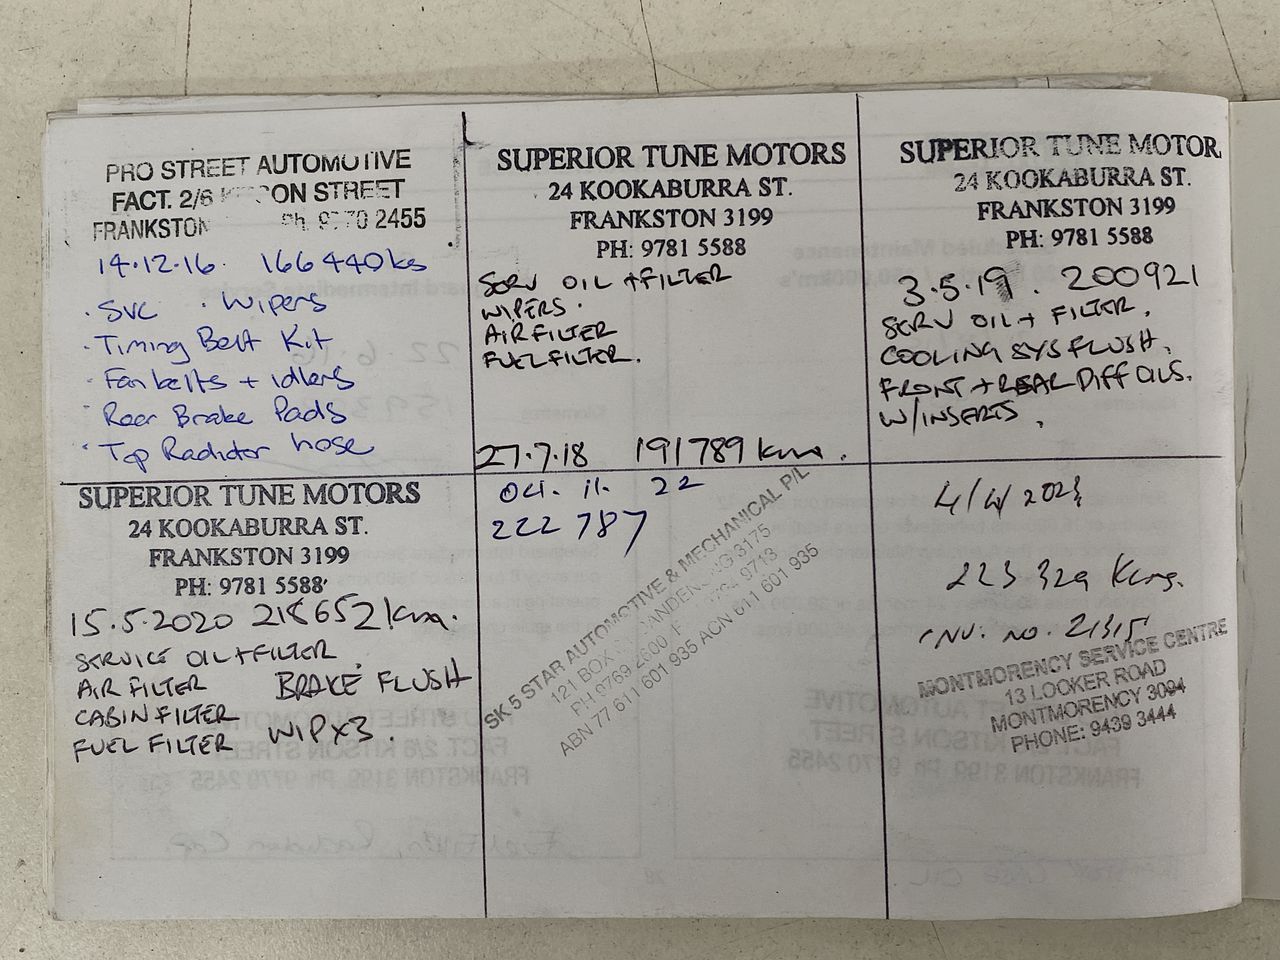 PRO STREET AUTOMOTIVE
FACT. 2/6 STREET
FRANKSTON Ph. 9770 2455
14.12.16. 166440ks
· SVC · Wipers
· Timing Belt Kit
· Fan belts + idlers
· Rear Brake Pads
· Top Radiator hose
SUPERIOR TUNE MOTORS
24 KOOKABURRA ST.
FRANKSTON 3199
PH: 9781 5588
SERV OIL + FILTER
WIPERS.
AIR FILTER
FUEL FILTER.
27.7.18 191789 kms.
SUPERIOR TUNE MOTOR
24 KOOKABURRA ST.
FRANKSTON 3199
PH: 9781 5588
3.5.19. 200921
SERV OIL + FILTER.
COOLING SYS FLUSH.
FRONT + REAR DIFF OILS.
W/INSERTS.
SUPERIOR TUNE MOTORS
24 KOOKABURRA ST.
FRANKSTON 3199
PH: 9781 5588
15.5.2020 218652 km.
SERVICE OIL + FILTER.
AIR FILTER BRAKE FLUSH
CABIN FILTER
FUEL FILTER WIPX3.
04. 11. 22
222 787
SK 5 STAR AUTOMOTIVE & MECHANICAL P/L
121 BOX 3175
PH 9769 2600 9713
ABN 77 611 601 935 ACN 611 601 935
4/4/2023
223 329 Kms.
INV. NO. 21315
MONTMORENCY SERVICE CENTRE
13 LOOKER ROAD
MONTMORENCY 3094
PHONE: 9439 3444